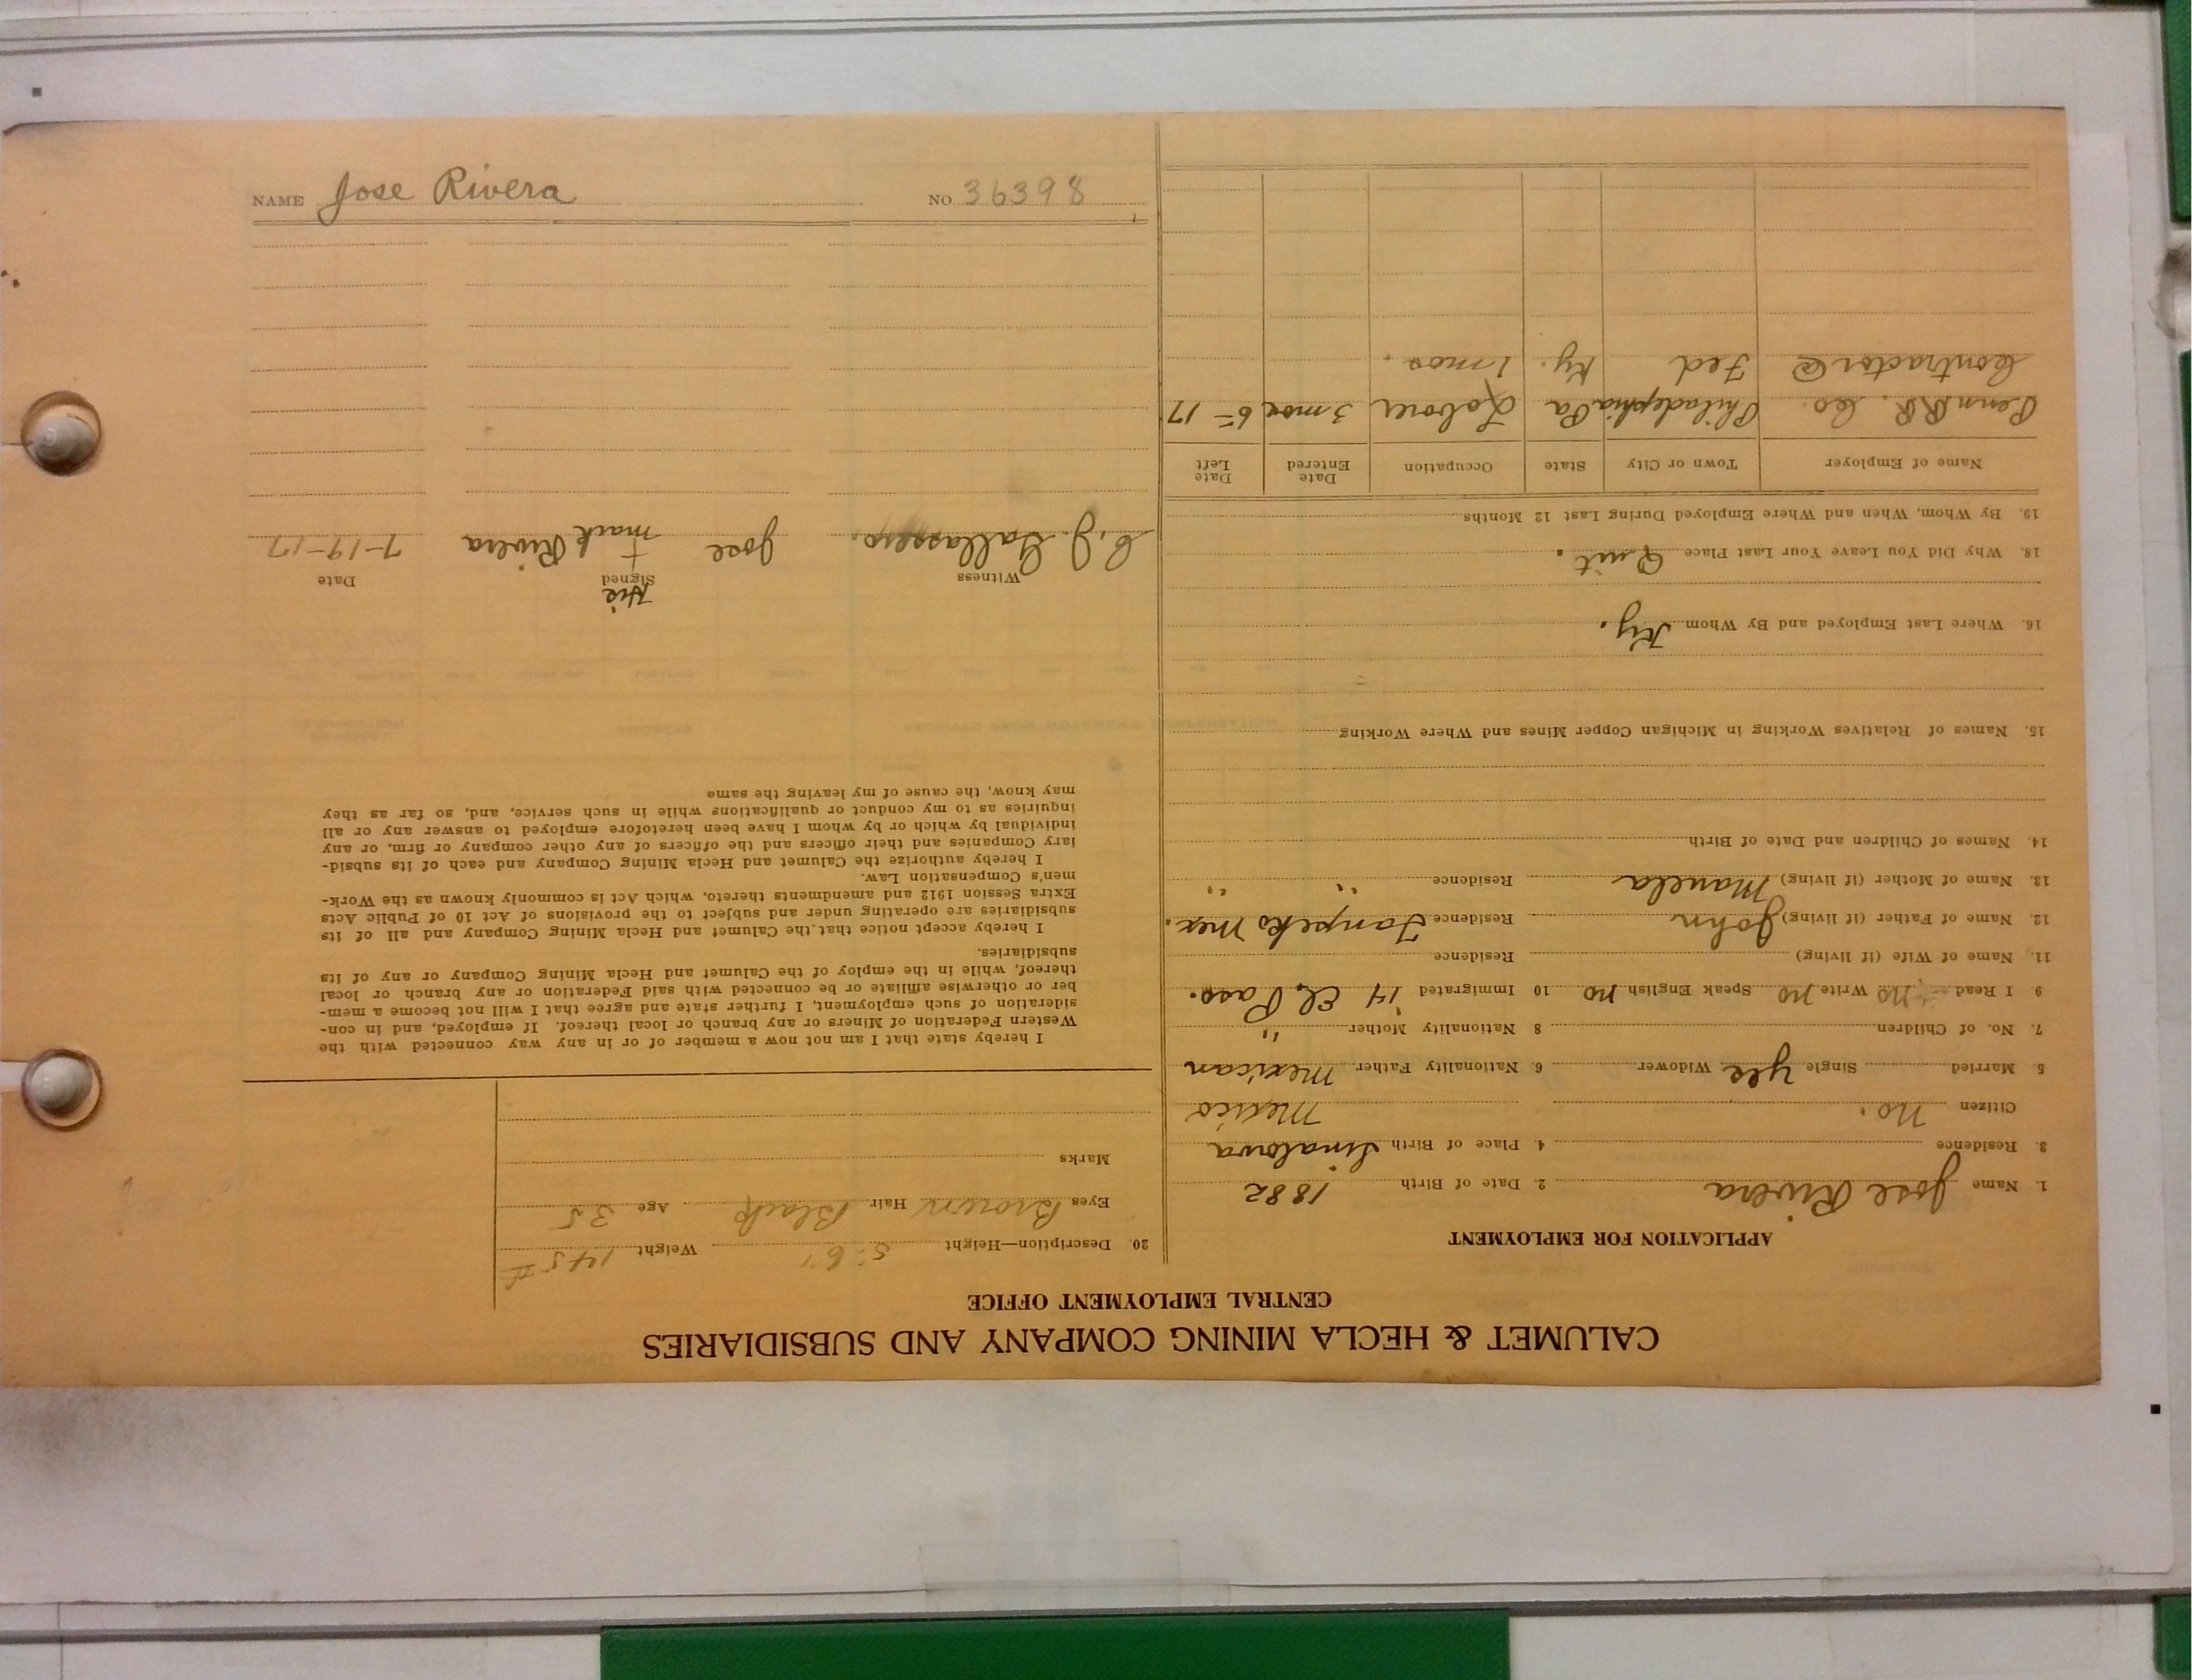 CALUMET & HECLA MINING COMPANY AND SUBSIDIARIES
CENTRAL EMPLOYMENT OFFICE
APPLICATION FOR EMPLOYMENT
1. Name Jose Rivera 2. Date of Birth 1882
3. Residence 4. Place of Birth Sinalowa
Citizen No. Mexico
5. Married Single yes Widower 6. Nationality Father Mexican
7. No. of Children 8 Nationality Mother "
9 I Read No Write No Speak English no 10 Immigrated 14 El Paso.
11. Name of Wife (if living) Residence
12. Name of Father (if living) John Residence Tanpeko Mex.
13. Name of Mother (if living) Manela Residence " "
14. Names of Children and Date of Birth
15. Names of Relatives Working in Michigan Copper Mines and Where Working
16. Where Last Employed and By Whom Ky.
18. Why Did You Leave Your Last Place Quit.
19. By Whom, When and Where Employed During Last 12 Months
Name of Employer Town or City State Occupation Date Entered Date Left
Penn RR. Co. Philadephia Pa Laborer 3 mos 6-17
Contractor @ Jed Ky. 1 mos.
20. Description—Height 5' 6" Weight 145 #
Eyes Brown Hair Black Age 35
Marks
I hereby state that I am not now a member of or in any way connected with the
Western Federation of Miners or any branch or local thereof. If employed, and in con-
sideration of such employment, I further state and agree that I will not become a mem-
ber or otherwise affiliate or be connected with said Federation or any branch or local
thereof, while in the employ of the Calumet and Hecla Mining Company or any of its
subsidiaries.
I hereby accept notice that the Calumet and Hecla Mining Company and all of its
subsidiaries are operating under and subject to the provisions of Act 10 of Public Acts
Extra Session 1912 and amendments thereto, which Act is commonly known as the Work-
men's Compensation Law.
I hereby authorize the Calumet and Hecla Mining Company and each of its subsid-
iary Companies and their officers and the officers of any other company or firm, or any
individual by which or by whom I have been heretofore employed to answer any or all
inquiries as to my conduct or qualifications while in such service, and, so far as they
may know, the cause of my leaving the same
Witness Signed Date
His
C. J. Gallassero. Jose + Rivera 7-19-17
mark
NAME Jose Rivera NO. 36398